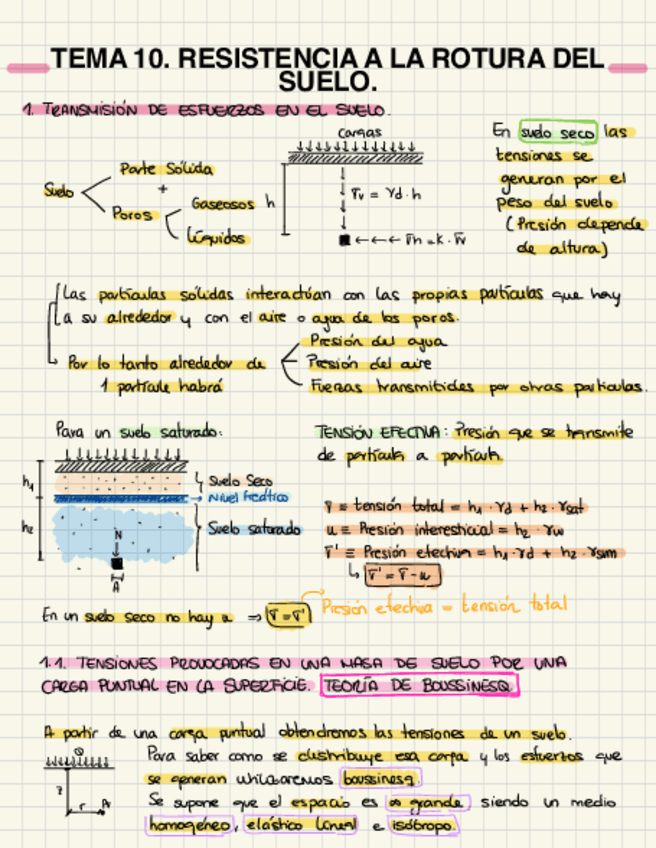 TEMA 10. RESISTENCIA A LA ROTURA DEL
SUELO.
1. TRANSMISIÓN DE ESFUERZOS EN EL SUELO.
Cargas
Suelo
Parte Sólida
+
Poros
Gaseosos
Líquidos
h
σv = γd · h
σh = k · σv
En suelo seco las
tensiones se
generan por el
peso del suelo
(Presión depende
de altura)
Las partículas sólidas interactúan con las propias partículas que hay
a su alrededor y con el aire o agua de los poros.
Por lo tanto alrededor de
1 partícula habrá
Presión del agua
Presión del aire
Fuerzas transmitidas por otras partículas.
Para un suelo saturado:
h1
h2
Suelo Seco
Nivel freático
Suelo saturado
N
A
TENSIÓN EFECTIVA: Presión que se transmite
de partícula a partícula.
σ ≡ tensión total = h1 · γd + h2 · γsat
u ≡ Presión intersticial = h2 · γw
σ' ≡ Presión efectiva = h1 · γd + h2 · γsum
σ' = σ - u
En un suelo seco no hay u ⇒ σ = σ'
Presión efectiva = tensión total
1.1. TENSIONES PROVOCADAS EN UNA MASA DE SUELO POR UNA
CARGA PUNTUAL EN LA SUPERFICIE. TEORÍA DE BOUSSINESQ
A partir de una carga puntual obtendremos las tensiones de un suelo.
Q
z
r
A
Para saber como se distribuye esa carga y los esfuerzos que
se generan utilizaremos boussinesq.
Se supone que el espacio es ∞ grande, siendo un medio
homogéneo, elástico lineal e isótropo.